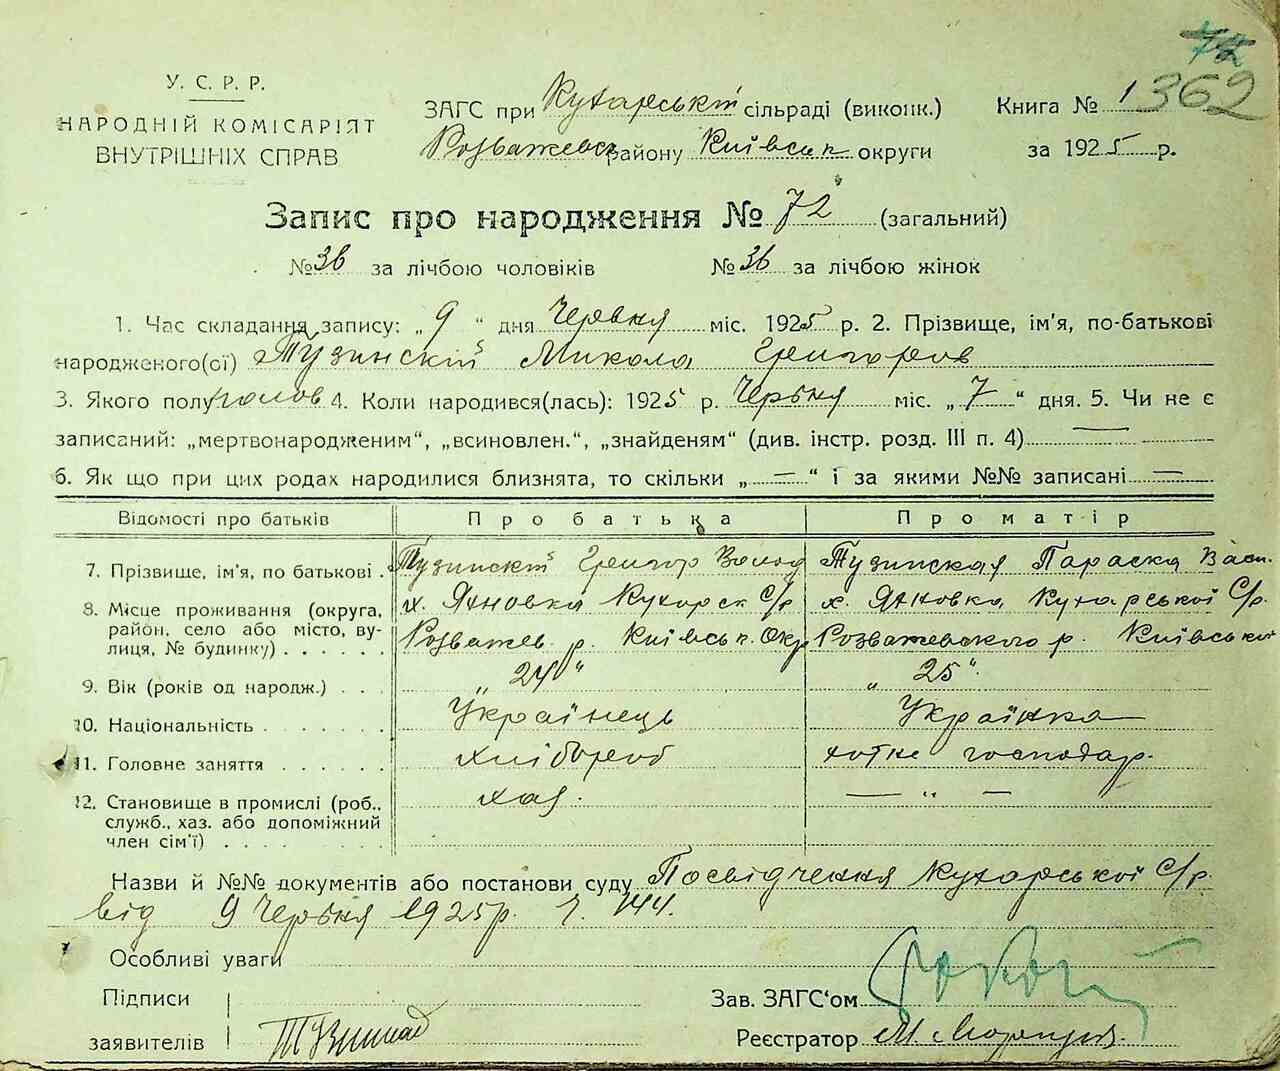 72
1362
У. С. Р. Р.
НАРОДНІЙ КОМІСАРІЯТ
ВНУТРІШНІХ СПРАВ
ЗАГС при Кухарській сільраді (виконк.)
Розважевск району Київськ округи
Книга № 1
за 1925 р.
Запис про народження № 72 (загальний)
№ 36 за лічбою чоловіків № 36 за лічбою жінок
1. Час складання запису: „ 9 “ дня Червня міс. 1925 р. 2. Прізвище, ім'я, по-батькові
народженого(ої) Тузинскій Микола Григоров
3. Якого полу чолов 4. Коли народився(лась): 1925 р. Червня міс. „ 7 “ дня. 5. Чи не є
записаний: „мертвонародженим“, „всиновлен.“, „знайденям“ (див. інстр. розд. III п. 4) —
6. Як що при цих родах народилися близнята, то скільки „ — “ і за якими №№ записані —
Відомості про батьків Про батька Про матір
7. Прізвище, ім'я, по батькові . Тузинскій Григор Волод Тузинская Параска Васи.
8. Місце проживання (округа, х. Яхновка Кухарск С/р х. Яхновка, Кухарської С/р.
район, село або місто, ву- Розважев. р. Київськ. Окр Розважевского р. Київської
лиця, № будинку) . . . . . .
9. Вік (років од народж.) . . . „ 24 “ „ 25 “
10. Національність . . . . . . . Українець Українка
11. Головне заняття . . . . . . хлібороб хотне господар.
12. Становище в промислі (роб., хаз. — „ —
служб., хаз. або допоміжний
член сім'ї) . . . . . . . . .
Назви й №№ документів або постанови суду Посвідчення Кухарської С/р.
від 9 Червня 1925р. ч. 144.
Особливі уваги
Підписи
заявителів
Зав. ЗАГС'ом
Реєстратор М.